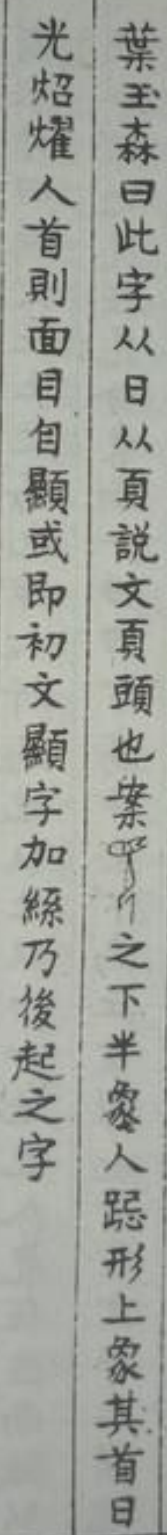 葉玉森曰此字从日从頁説文頁頭也案之下半象人跽形上象其首日
光炤燿人首則面目自顯或即初文顯字加絲乃後起之字